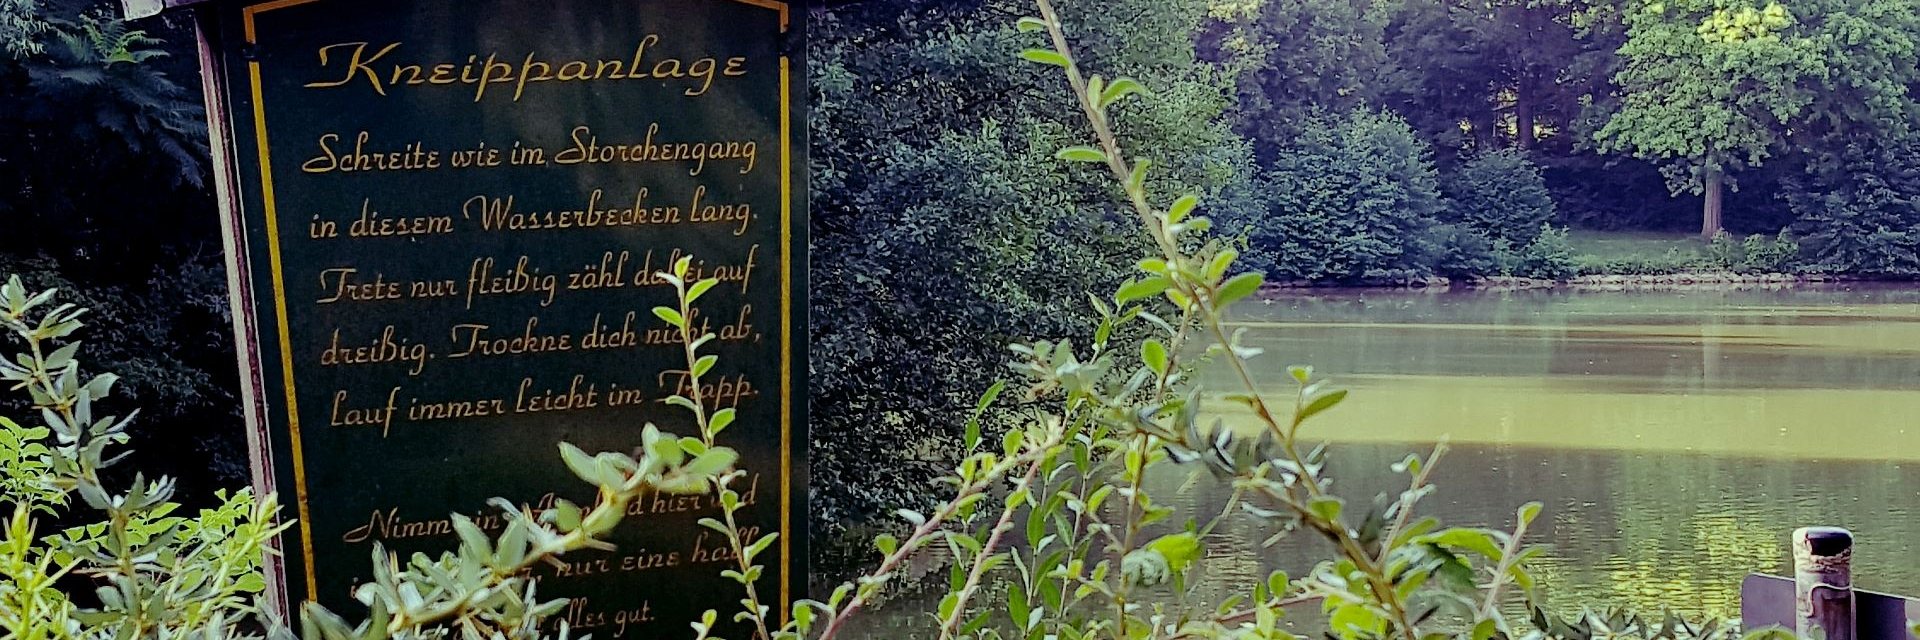 Kneippanlage
Schreite wie im Storchengang
in diesem Wasserbecken lang.
Trete nur fleißig zähl dabei auf
dreißig. Trockne dich nicht ab,
lauf immer leicht im Trapp.
Nimm ein Armbad hier und
nur eine halb
alles gut.